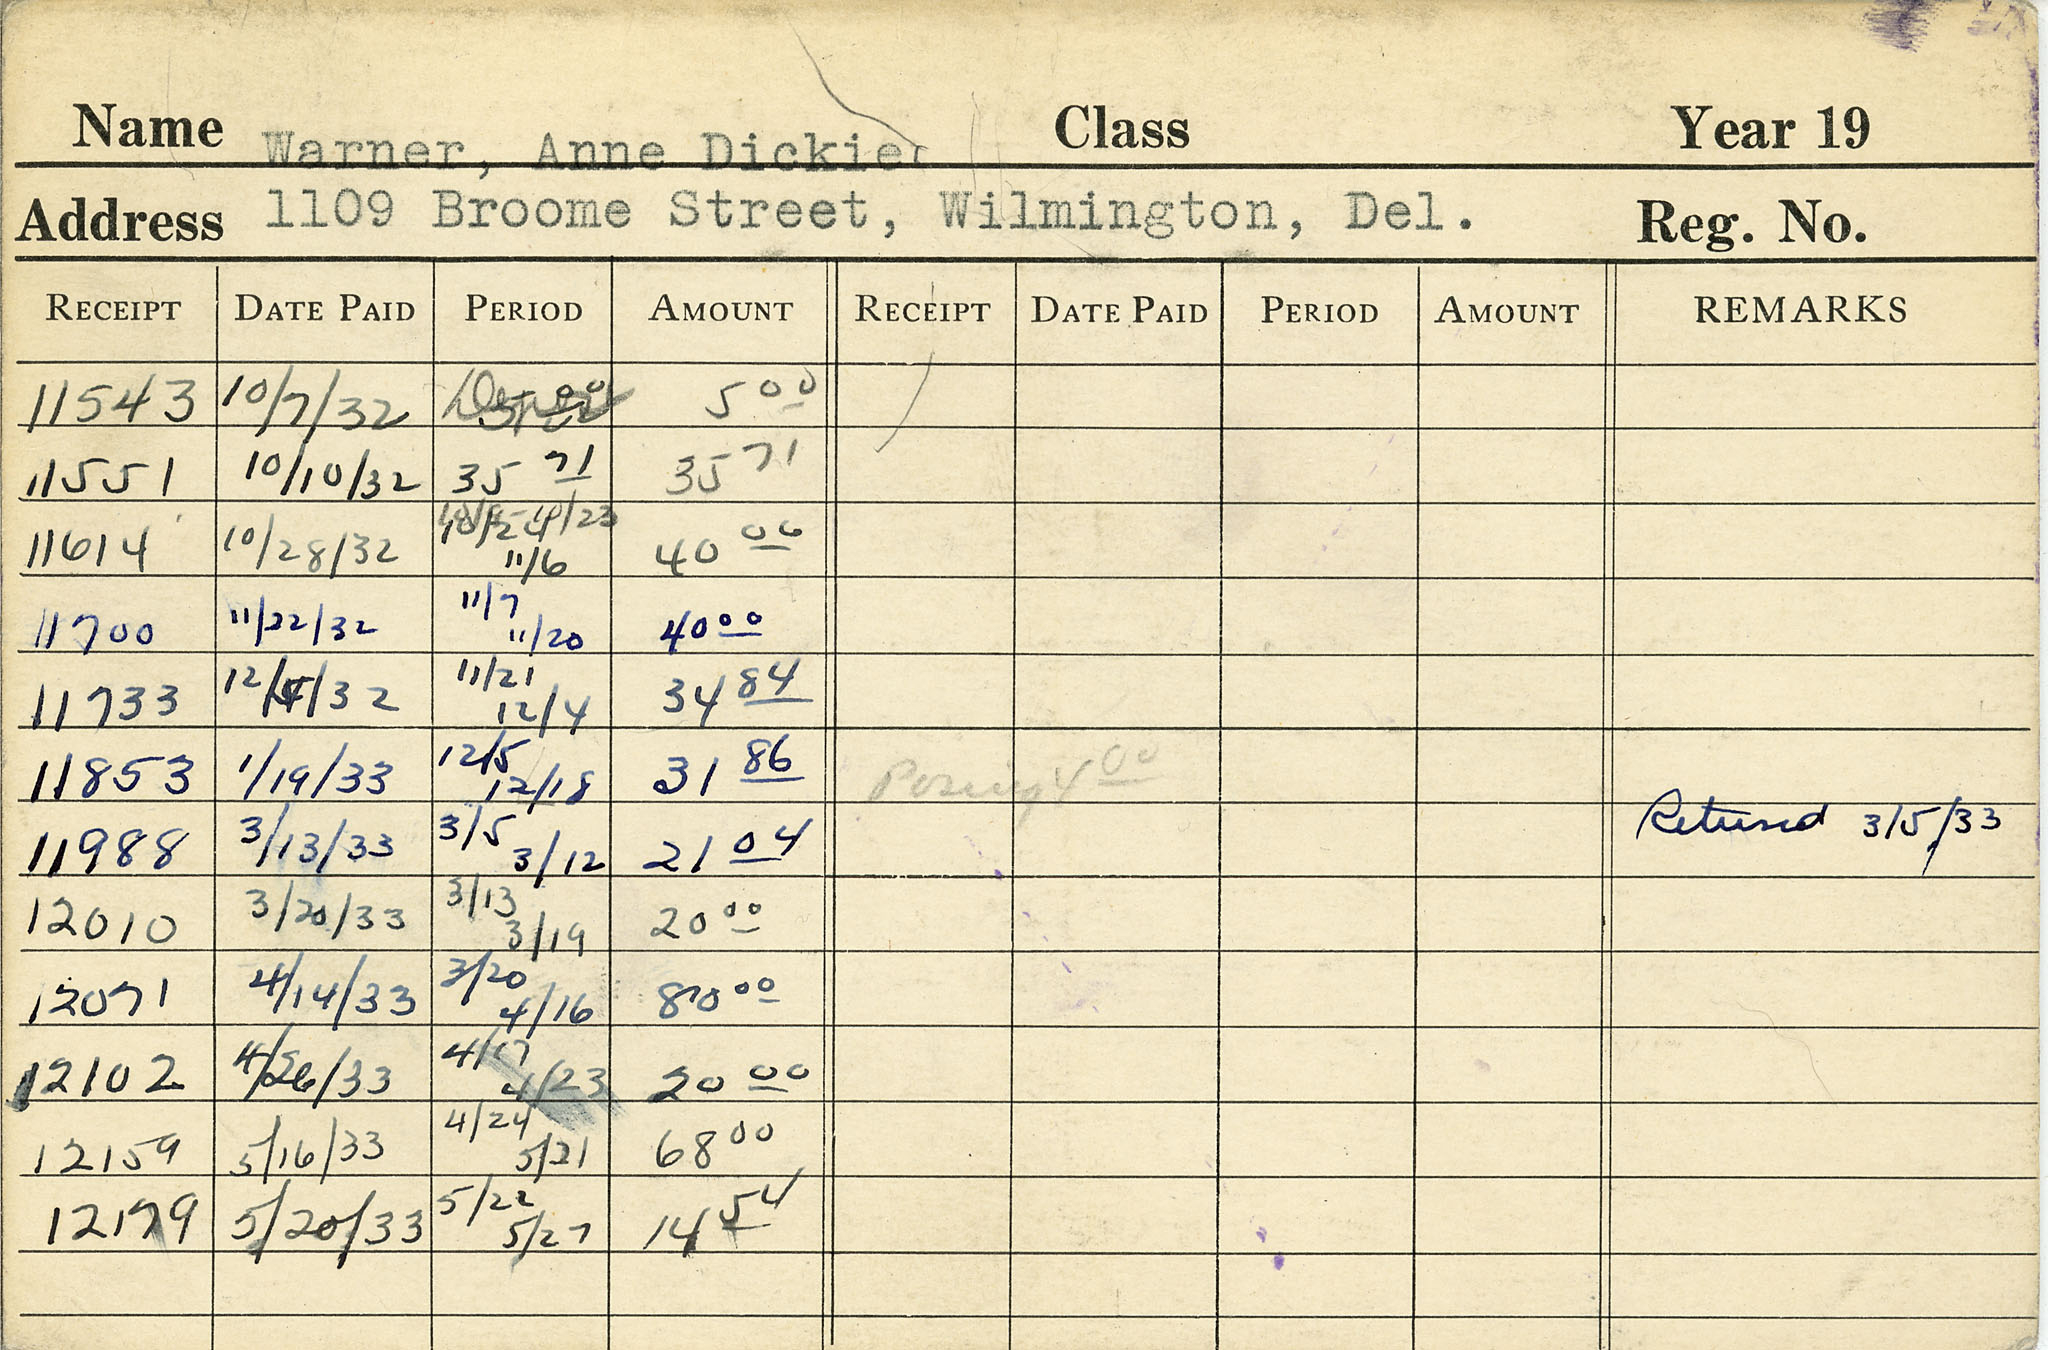 Name Warner, Anne Dickie Class Year 19
Address 1109 Broome Street, Wilmington, Del. Reg. No.
RECEIPT DATE PAID PERIOD AMOUNT RECEIPT DATE PAID PERIOD AMOUNT REMARKS
11543 10/7/32 5 00
11551 10/10/32 35 71 35 71
10/23
11614 10/28/32 10/24 11/6 40 00
11700 11/22/32 11/7 11/20 40 00
11733 12/ /32 11/21 12/4 34 84
11853 1/19/33 12/5 12/18 31 86 Posing 4 00
11988 3/13/33 3/5 3/12 21 04 Returned 3/5/33
12010 3/20/33 3/13 3/19 20 00
12071 4/14/33 3/20 4/16 80 00
12102 4/26/33 4/17 4/23 20 00
12159 5/16/33 4/24 5/21 68 00
12179 5/20/33 5/22 5/27 14 54